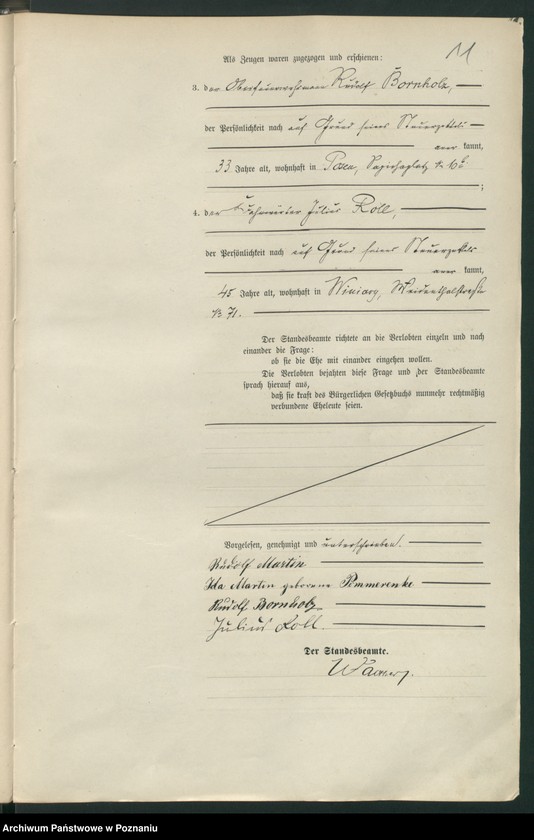 11
Als Zeugen waren zugezogen und erschienen:
3. der Oberfeuerwehrmann Rudolf Bornholz,
der Persönlichkeit nach auf Grund seines Steuerzettels
aner kannt,
33 Jahre alt, wohnhaft in Posen, Sapiehaplatz
;
4. der Julius Roll,
der Persönlichkeit nach auf Grund seines Steuerzettels
aner kannt,
45 Jahre alt, wohnhaft in Winiary, Weidenthalstraße
No 71.
Der Standesbeamte richtete an die Verlobten einzeln und nach
einander die Frage:
ob sie die Ehe mit einander eingehen wollen.
Die Verlobten bejahten diese Frage und der Standesbeamte
sprach hierauf aus,
daß sie kraft des Bürgerlichen Gesetzbuchs nunmehr rechtmäßig
verbundene Eheleute seien.
Vorgelesen, genehmigt und unterschrieben.
Rudolf Martin
Ida Martin geborene Pommerenke
Rudolf Bornholz
Julius Roll
Der Standesbeamte.
Archiwum Państwowe w Poznaniu